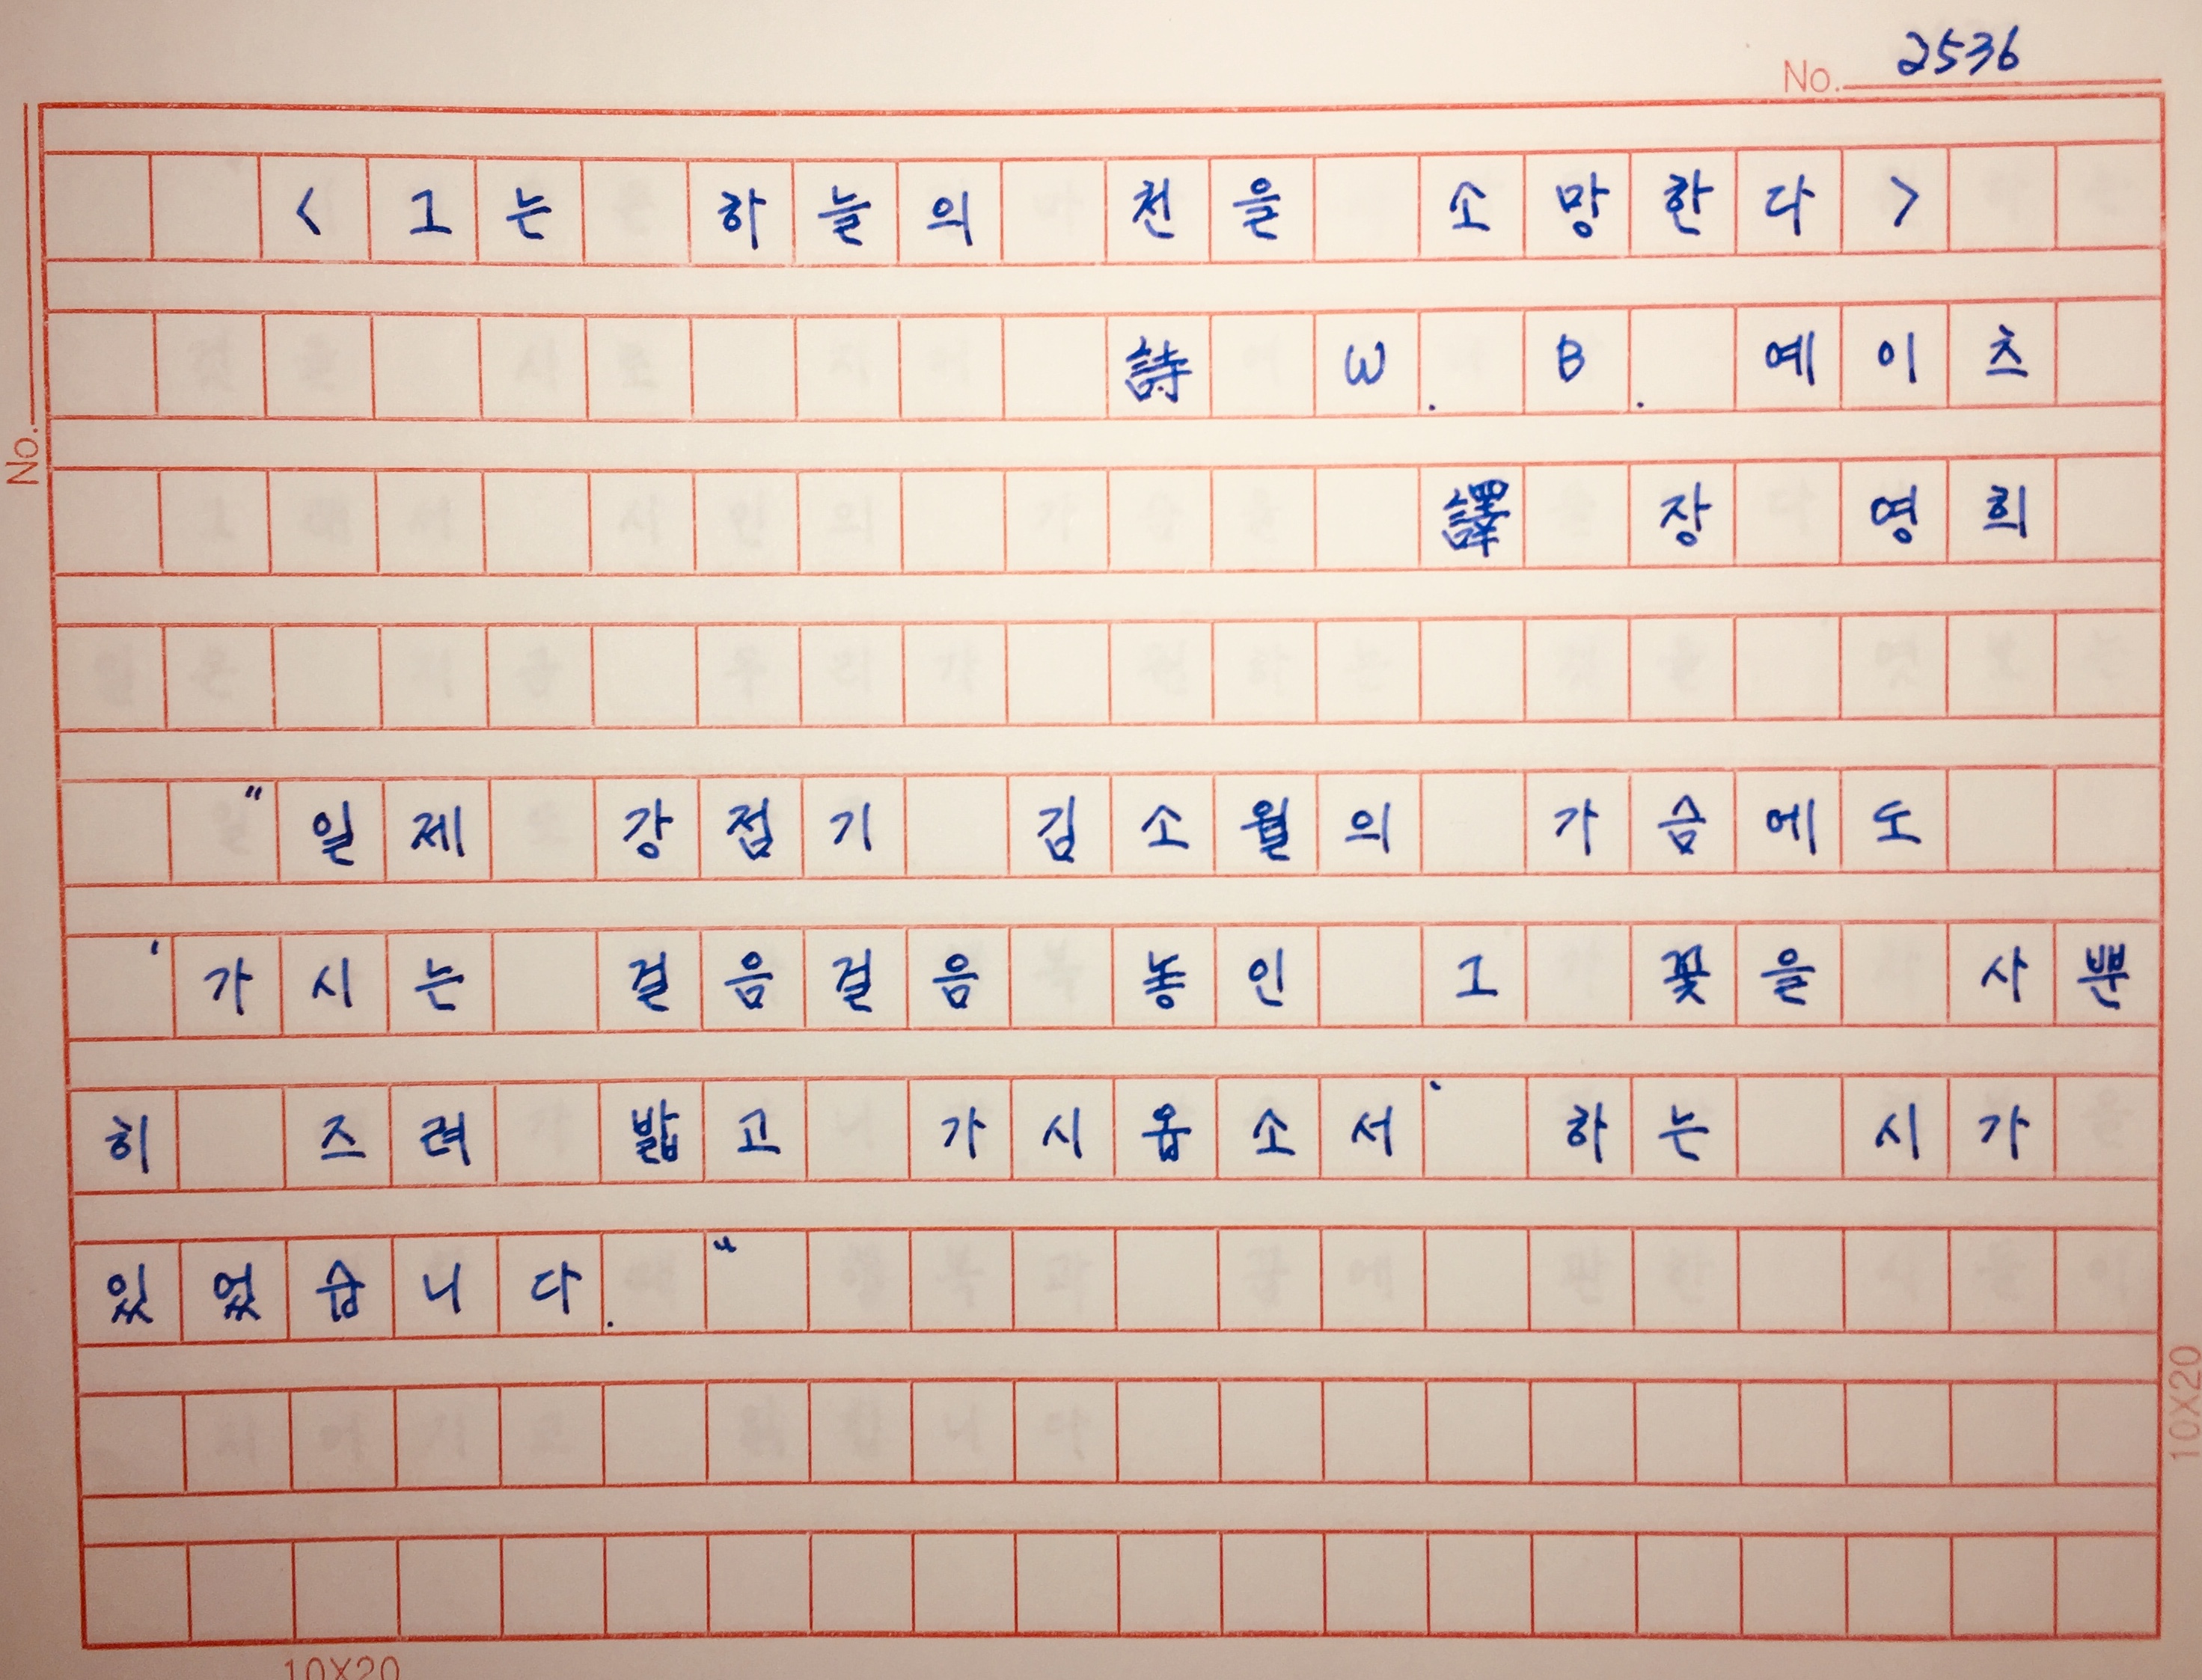 No. 2536
<그는 하늘의 천을 소망한다>
詩 W. B. 예이츠
No.
譯 장 영희
"일제 강점기 김소월의 가슴에도
'가시는 걸음걸음 놓인 그 꽃을 사뿐
히 즈려 밟고 가시옵소서' 하는 시가
있었습니다."
10X20
10X20